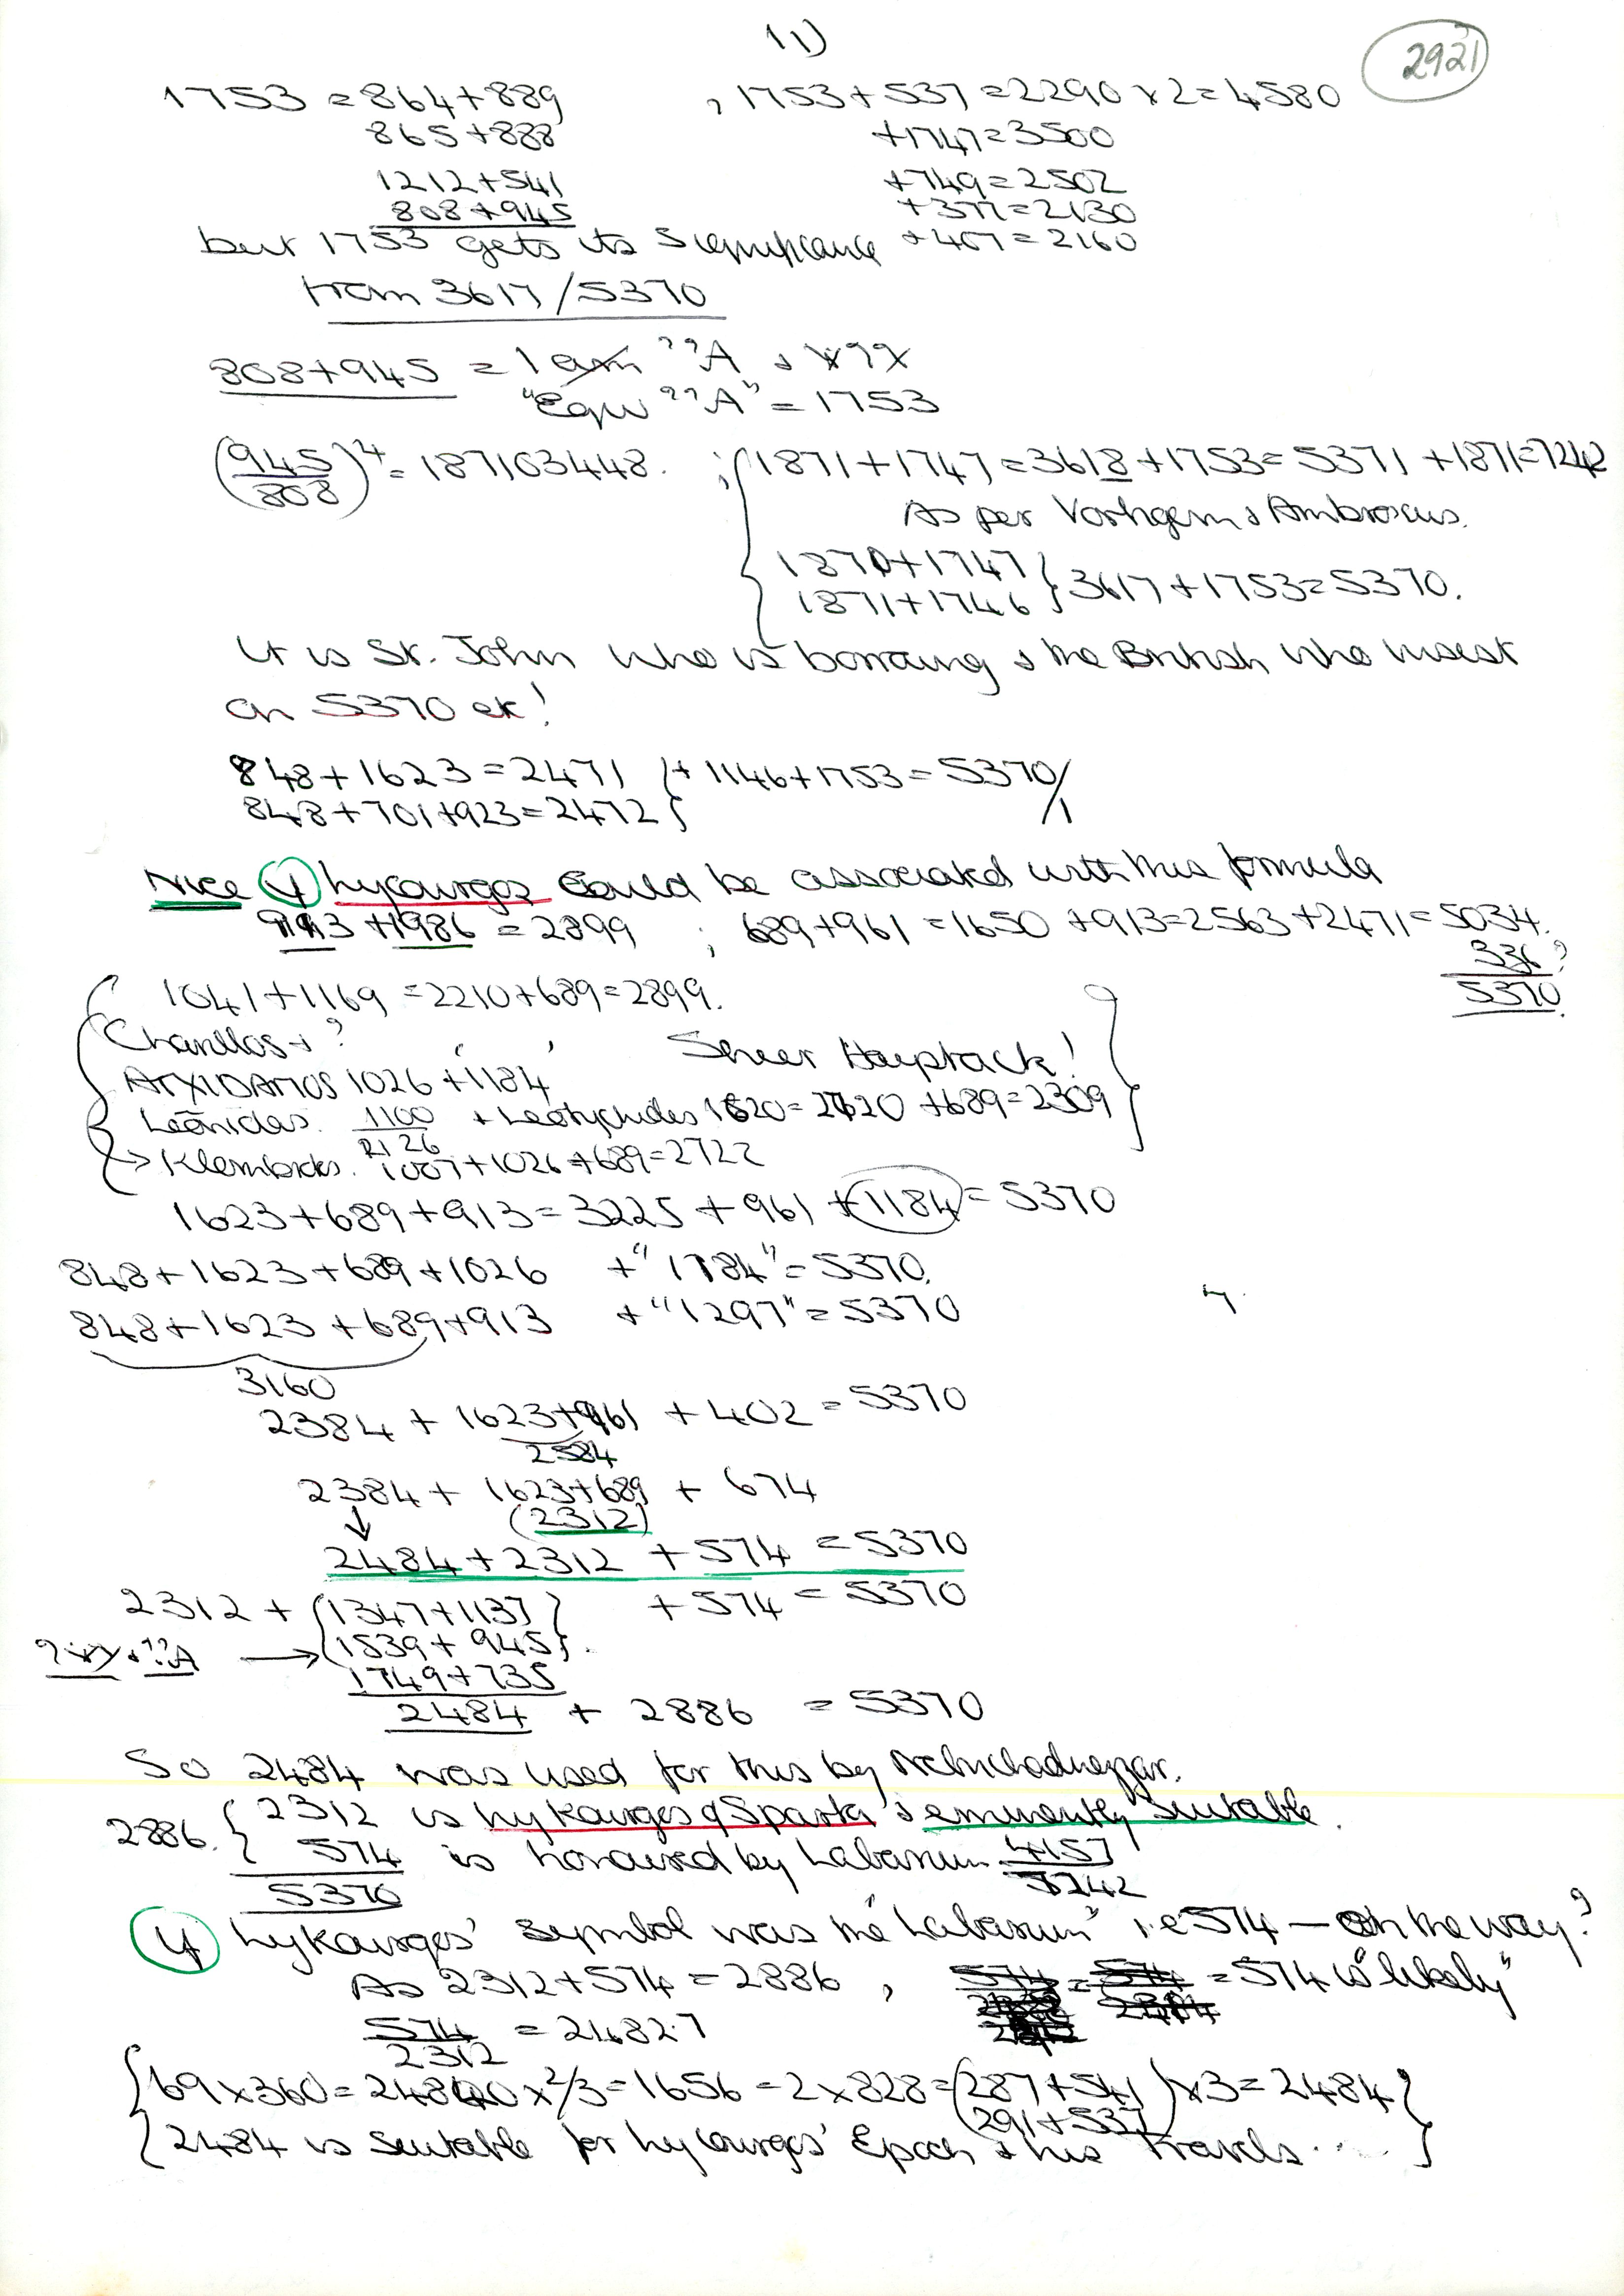 11)
2921
1753 = 864+889 , 1753+537=2290×2=4580
865+888 +1747=3500
1212+541 +749=2502
808+945 +377=2130
but 1753 gets its significance +407=2160
from 3617/5370
808+945 = 1 am ??A & X??X
"Equ ??A" = 1753
(945/808)^4 = 187103448. ; 1871+1747=3618+1753=5371 +1871=7242
As per Vortigern & Ambrosius.
1870+1747
1871+1746 } 3617+1753=5370.
It is St. John who is borrowing & the British who insist
on 5370 ek!
848+1623=2471 }+1146+1753=5370/1
848+701+923=2472
Nice if Lycourgos could be associated with this formula
913+1986 = 2899 ; 689+961=1650 +913=2563+2471=5034.
336?
5370.
1041+1169=2210+689=2899.
Charillos + ?
ATXIDAMOS 1026 +'1184' Sheer Haystack!
Leōnidas. 1100 + Leotychides 1620=2720 +689=2309
2126
→ Klembrotos. 1007+1026+689=2722
1623+689+913=3225+961+1184=5370
848+1623+689+1026 +"1184"=5370.
848+1623+689+913 +"1297"=5370
3160
2384 + 1623+961 + 402=5370
2584
2384+ 1623+689 + 674
↓ (2312)
2484+2312 +574 =5370
2312 + {1347+1137} +574=5370
?XX & ??A → {1539+945}.
1749+735
2484 + 2886 = 5370
So 2484 was used for this by Nebuchadnezzar.
2886. { 2312 is Lykourgos of Sparta & eminently suitable.
574 is honoured by Labarum 4157
5370 7242
If Lykourgos' symbol was the "Labarum" i.e 574 — On the way?
As 2312+574=2886 , = 574 is "likely"
574/2312 = 24827
{69×360=24840×2/3=1656=2×828=(287+541)×3=2484}
(291+537)
2484 is suitable for Lycourgos' Epoch & his Travels....